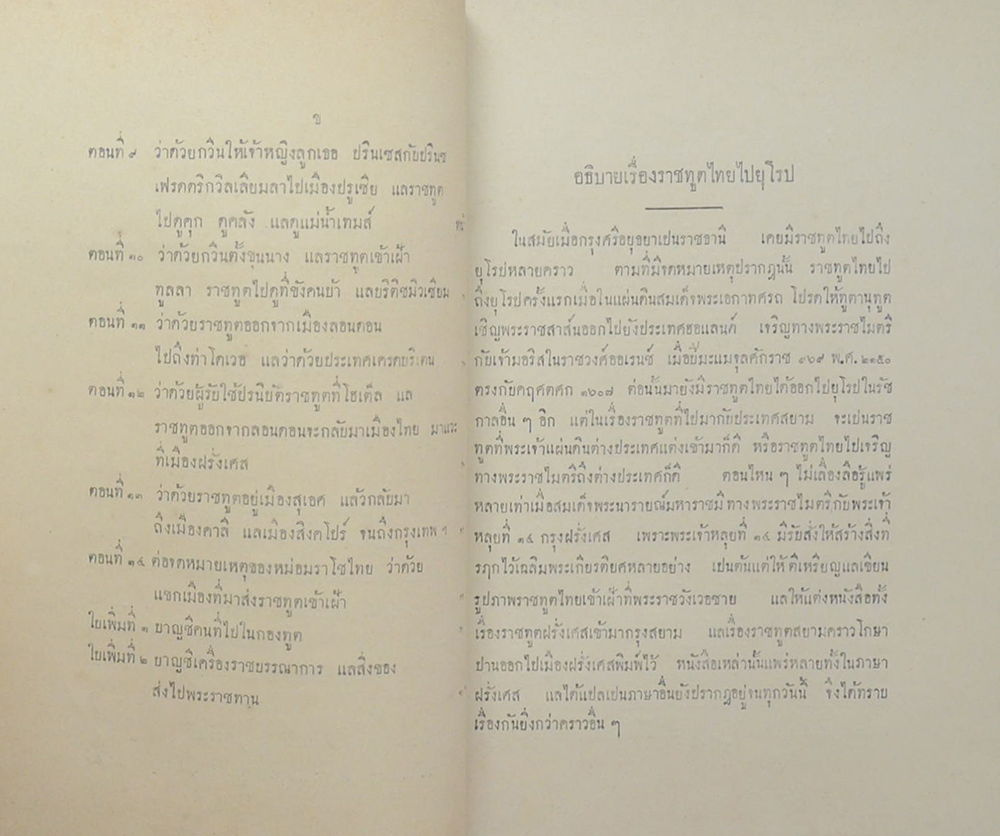 ข
ตอนที่ ๙ ว่าด้วยกวินให้เจ้าหญิงลูกเธอ ปรินเซสกับปรินซ
เฟรดดริกวิลเลียมลาไปเมืองปรูเซีย แลราชทูต
ไปดูคุก ดูคลัง แลดูแม่น้ำเทมส์
ตอนที่ ๑๐ ว่าด้วยกวินตั้งขุนนาง แลราชทูตเข้าเฝ้า
ทูลลา ราชทูตไปดูที่ขังคนบ้า แลบริติชมิวเซียม
ตอนที่ ๑๑ ว่าด้วยราชทูตออกจากเมืองลอนดอน
ไปถึงท่าโดเวอ แลว่าด้วยประเทศเครตบริเตน
ตอนที่ ๑๒ ว่าด้วยผู้รับใช้ปรนิบัติราชทูตที่โฮเต็ล แล
ราชทูตออกจากลอนดอนจะกลับมาเมืองไทย มาแวะ
ที่เมืองฝรั่งเศส
ตอนที่ ๑๓ ว่าด้วยราชทูตอยู่เมืองสุเอศ แล้วกลับมา
ถึงเมืองคาลี แลเมืองสิงคโปร์ จนถึงกรุงเทพ ฯ
ตอนที่ ๑๔ ต่อจดหมายเหตุของหม่อมราโชไทย ว่าด้วย
แขกเมืองที่มาส่งราชทูตเข้าเฝ้า
ใบเพิ่มที่ ๑ บาญชีคนที่ไปในกองทูต
ใบเพิ่มที่ ๒ บาญชีเครื่องราชบรรณาการ แลสิ่งของ
ส่งไปพระราชทาน
อธิบายเรื่องราชทูตไทยไปยุโรป
ในสมัยเมื่อกรุงศรีอยุธยาเปนราชธานี เคยมีราชทูตไทยไปถึง
ยุโรปหลายคราว ตามที่มีจดหมายเหตุปรากฎนั้น ราชทูตไทยไป
ถึงยุโรปครั้งแรกเมื่อในแผ่นดินสมเด็จพระเอกาทศรถ โปรดให้ทูตานุทูต
เชิญพระราชสาส์นออกไปยังประเทศฮอแลนด์ เจริญทางพระราชไมตรี
กับเจ้ามอริสในราชวงศ์ออเรนช์ เมื่อปีมะแมจุลศักราช ๙๖๙ พ.ศ. ๒๑๕๐
ตรงกับคฤศตศก ๑๖๐๗ ต่อนั้นมายังมีราชทูตไทยได้ออกไปยุโรปในรัช
กาลอื่น ๆ อีก แต่ในเรื่องราชทูตที่ไปมากับประเทศสยาม จะเปนราช
ทูตที่พระเจ้าแผ่นดินต่างประเทศแต่งเข้ามาก็ดี หรือราชทูตไทยไปเจริญ
ทางพระราชไมตรีถึงต่างประเทศก็ดี ตอนไหน ๆ ไม่เลื่องลือรู้แพร่
หลายเท่าเมื่อสมเด็จพระนารายณ์มหาราชมีทางพระราชไมตรีกับพระเจ้า
หลุยที่ ๑๔ กรุงฝรั่งเศส เพราะพระเจ้าหลุยที่ ๑๔ มีรับสั่งให้สร้างสิ่งที่
รฦกไว้เฉลิมพระเกียรติยศหลายอย่าง เปนต้นแต่ให้ตีเหรียญแลเขียน
รูปภาพราชทูตไทยเข้าเฝ้าที่พระราชวังเวอซาย แลให้แต่งหนังสือทั้ง
เรื่องราชทูตฝรั่งเศสเข้ามากรุงสยาม แลเรื่องราชทูตสยามคราวโกษา
ปานออกไปเมืองฝรั่งเศสพิมพ์ไว้ หนังสือเหล่านั้นแพร่หลายทั้งในภาษา
ฝรั่งเศส แลได้แปลเปนภาษาอื่นยังปรากฎอยู่จนทุกวันนี้ จึงได้ทราย
เรื่องกันยิ่งกว่าคราวอื่น ๆ